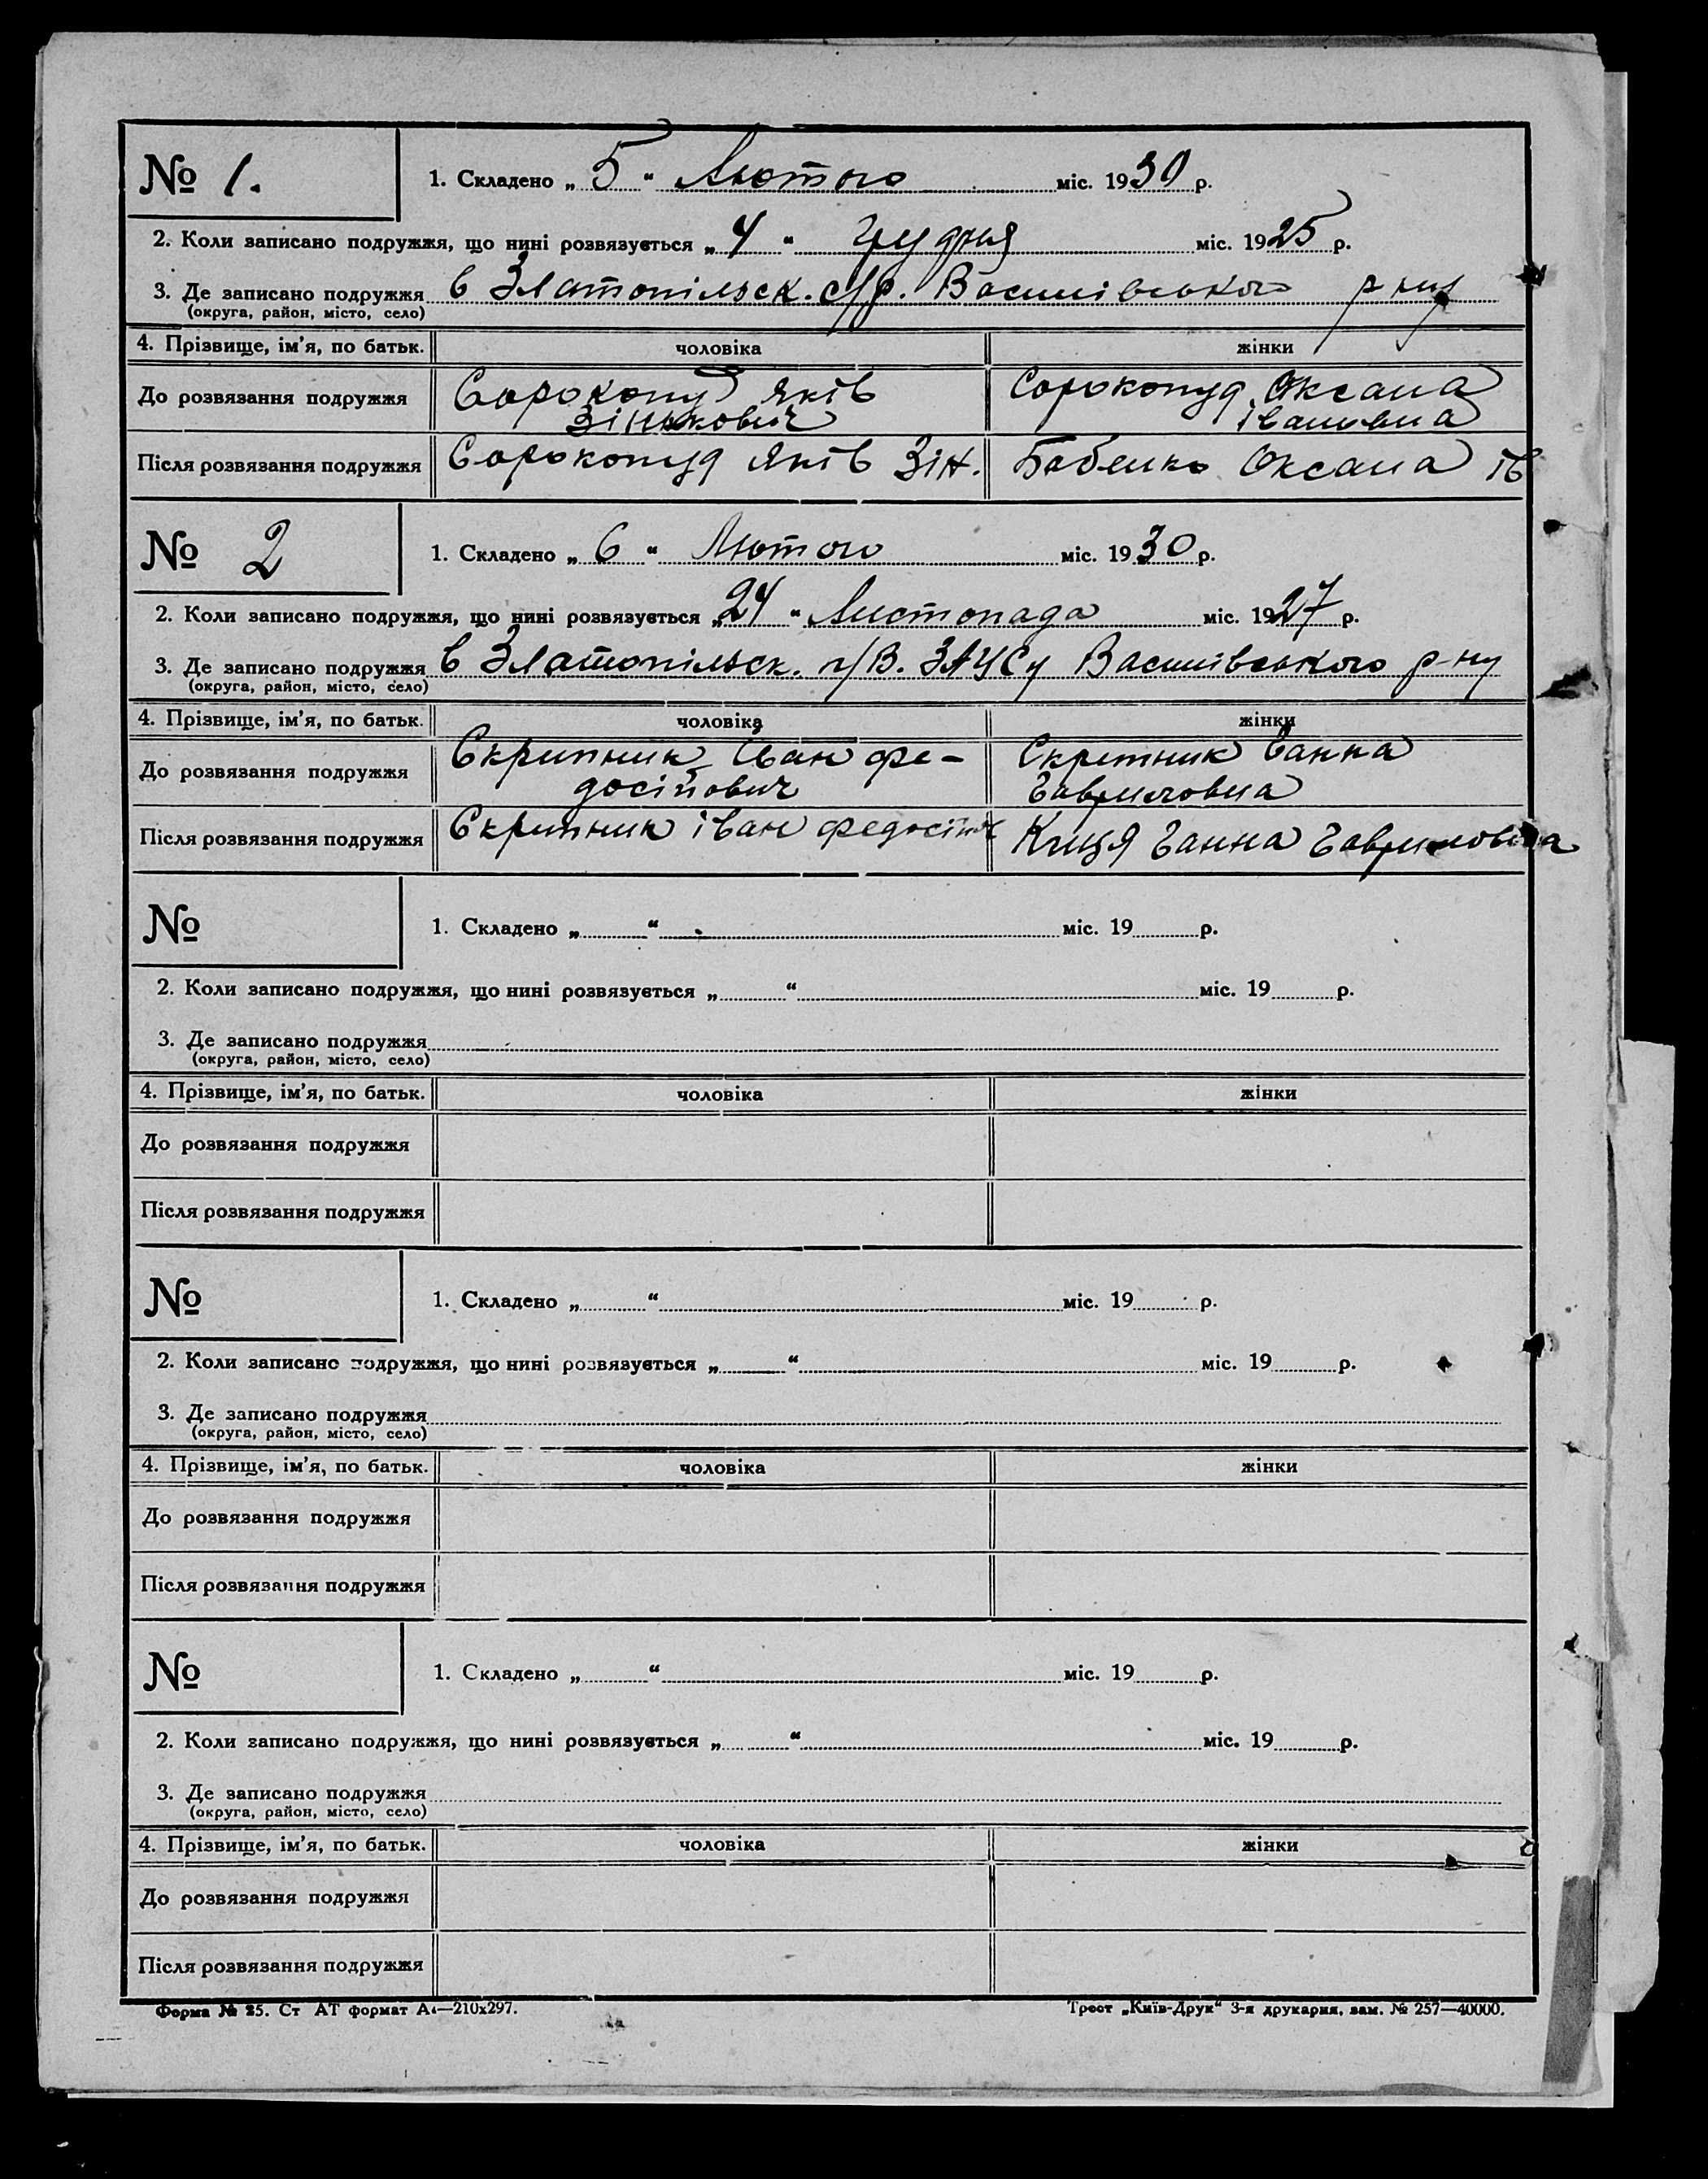 № 1. 1. Складено „ 5 “ Лютого міс. 1930 р.
2. Коли записано подружжя, що нині розвязується „ 4 “ грудня міс. 1925 р.
3. Де записано подружжя в Златопільск. с/р. Василівського р-ну
(округа, район, місто, село)
4. Прізвище, ім’я, по батьк. чоловіка жінки
До розвязання подружжя Сорокопуд Яків Сорокопуд Оксана
Зінькович Івановна
Після розвязання подружжя Сорокопуд Яків Зін. Бабенко Оксана Ів
№ 2 1. Складено „ 6 “ Лютого міс. 1930 р.
2. Коли записано подружжя, що нині розвязується „ 24 “ Листопада міс. 1927 р.
3. Де записано подружжя в Златопільск. п/В. ЗАЦСу Василівського р-ну
(округа, район, місто, село)
4. Прізвище, ім’я, по батьк. чоловіка жінки
До розвязання подружжя Скрипник Іван Фе- Скрипник Ганна
досійович Гавриловна
Після розвязання подружжя Скрипник Іван Федосійов Ганна Гавриловна
№ 1. Складено „ “ міс. 19 р.
2. Коли записано подружжя, що нині розвязується „ “ міс. 19 р.
3. Де записано подружжя
(округа, район, місто, село)
4. Прізвище, ім’я, по батьк. чоловіка жінки
До розвязання подружжя
Після розвязання подружжя
№ 1. Складено „ “ міс. 19 р.
2. Коли записано подружжя, що нині розвязується „ “ міс. 19 р.
3. Де записано подружжя
(округа, район, місто, село)
4. Прізвище, ім’я, по батьк. чоловіка жінки
До розвязання подружжя
Після розвязання подружжя
№ 1. Складено „ “ міс. 19 р.
2. Коли записано подружжя, що нині розвязується „ “ міс. 19 р.
3. Де записано подружжя
(округа, район, місто, село)
4. Прізвище, ім’я, по батьк. чоловіка жінки
До розвязання подружжя
Після розвязання подружжя
Форма № 25. Ст АТ формат А4—210х297. Трест „Київ-Друк“ 3-я друкарня, зам. № 257—40000.